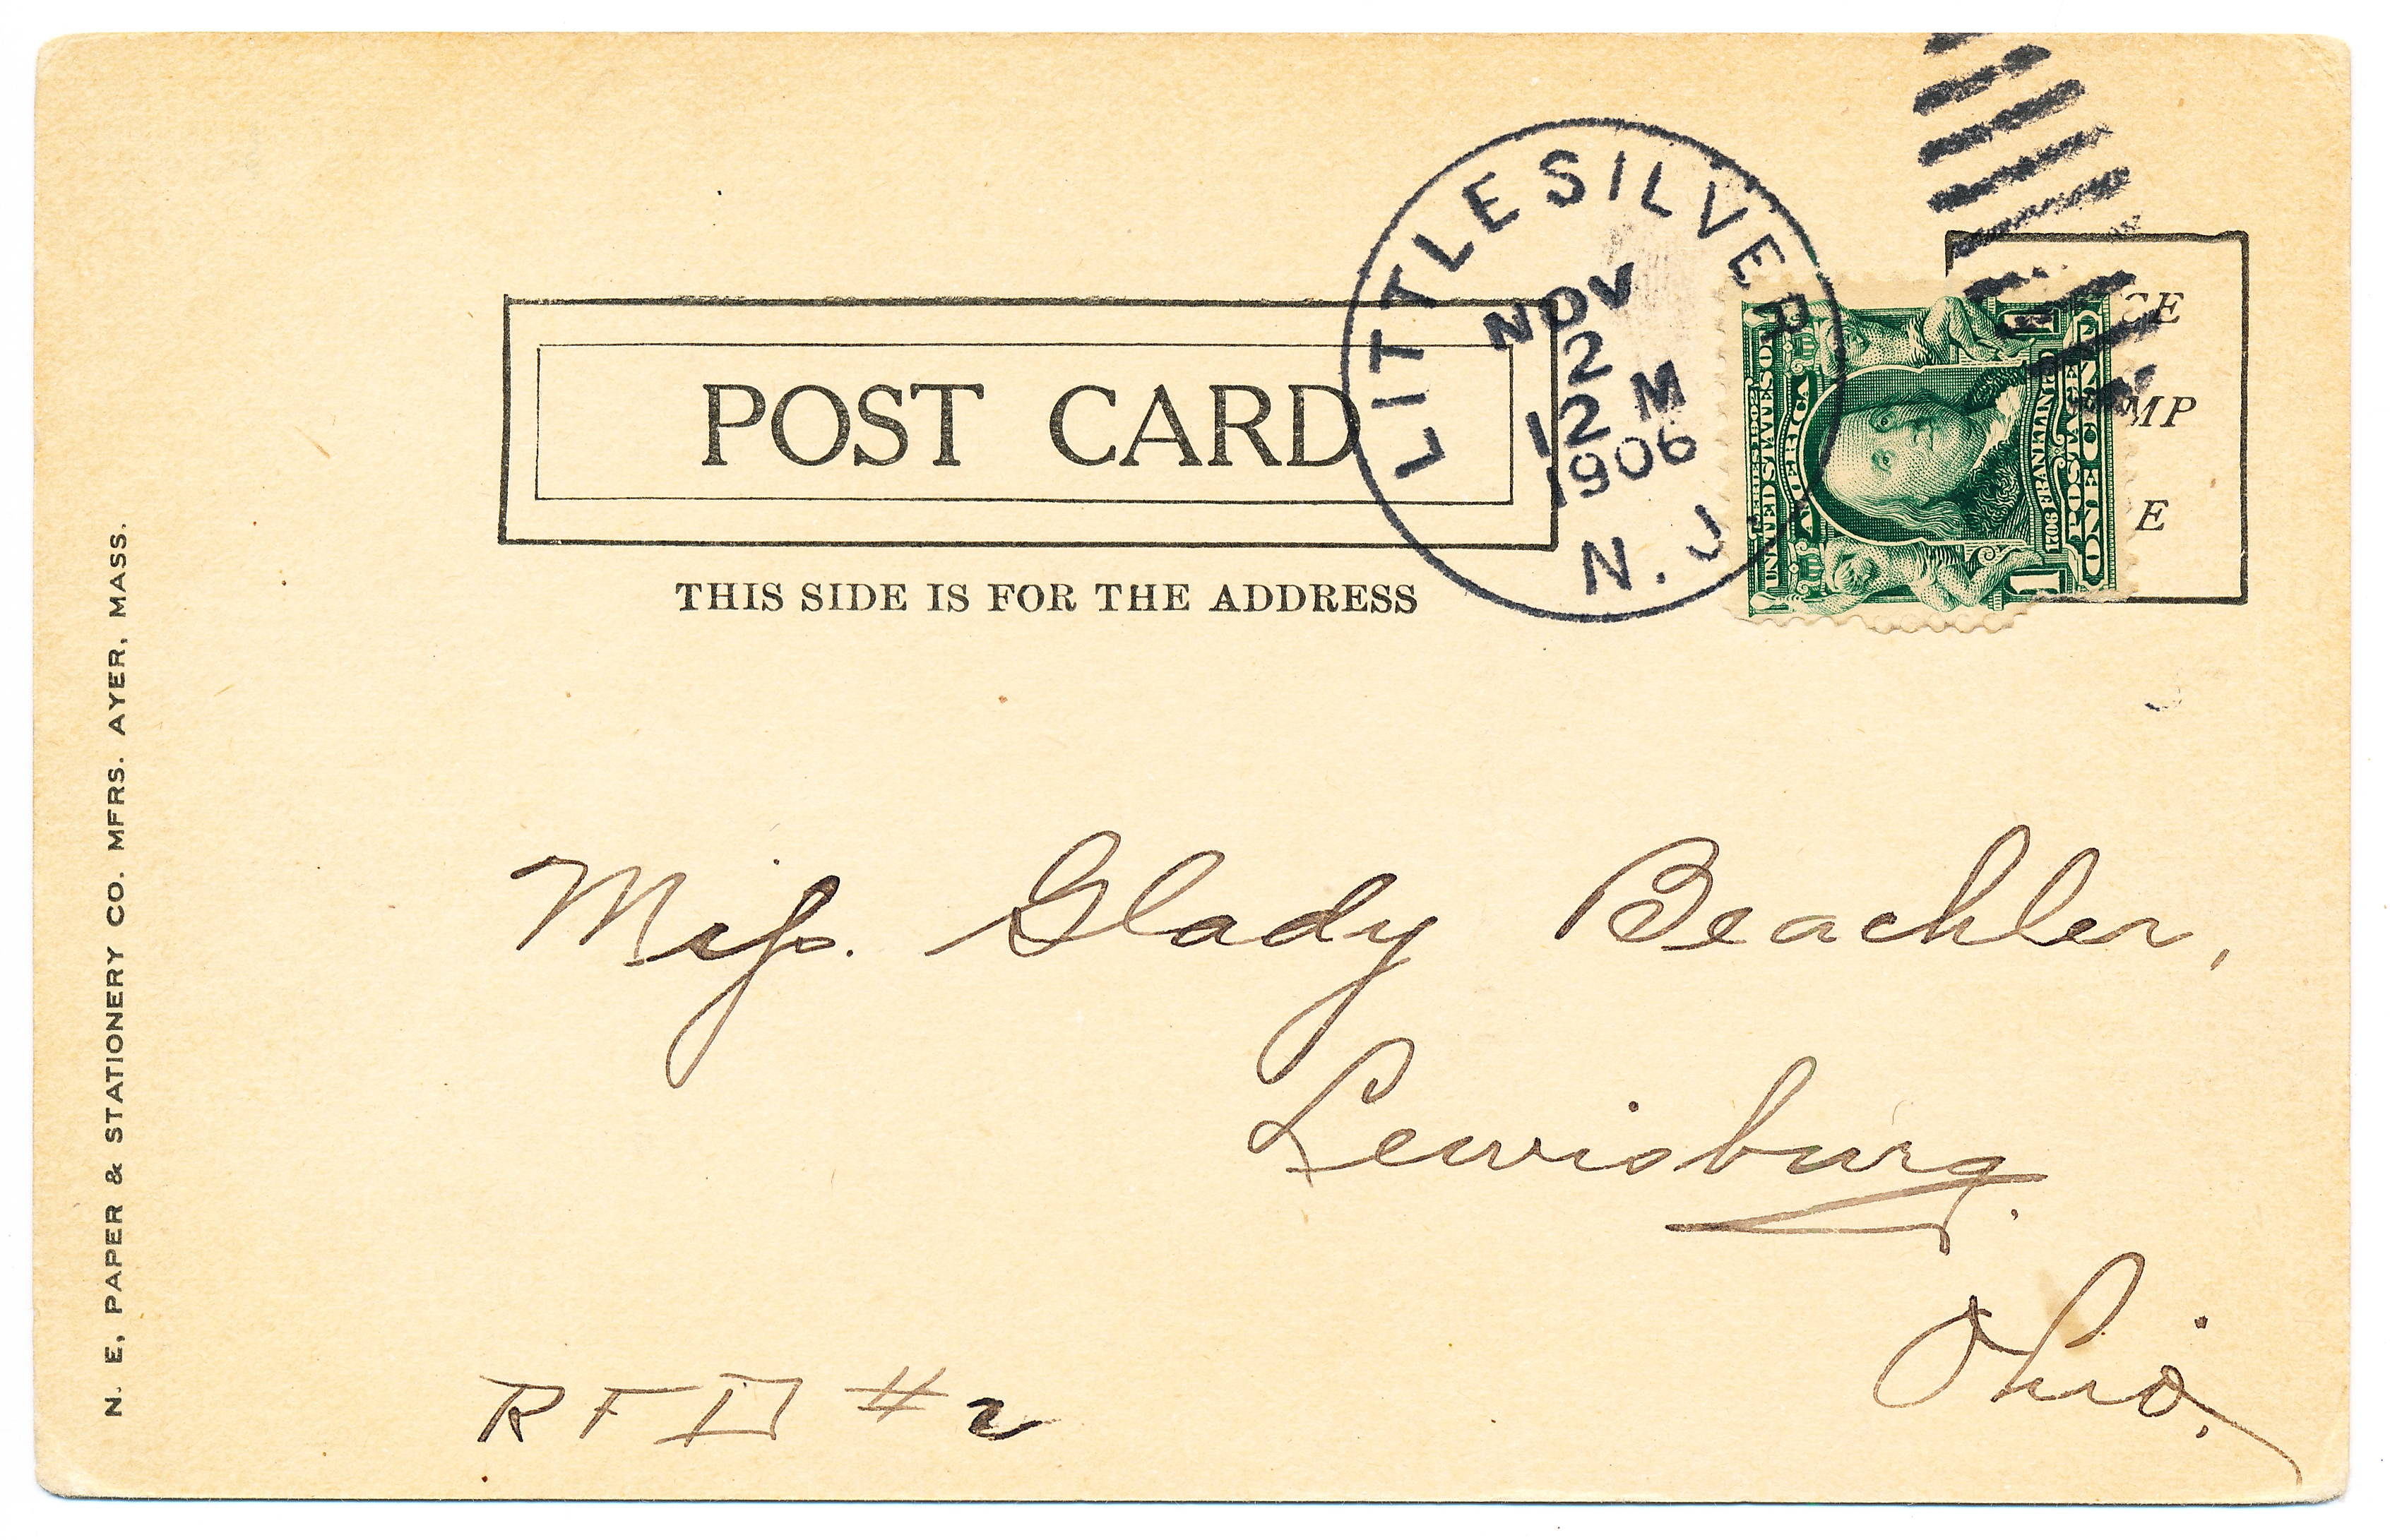 LITTLE SILVER
NOV
2
12 M
1906
N. J.
POST CARD
THIS SIDE IS FOR THE ADDRESS
CE
MP
E
SERIES 1902
UNITED STATES OF
AMERICA
1706 FRANKLIN 1790
POSTAGE
ONE CENT
1
1
Miss. Glady Beachler,
Lewisburg.
Ohio.
RFD #2
N. E. PAPER & STATIONERY CO. MFRS. AYER, MASS.